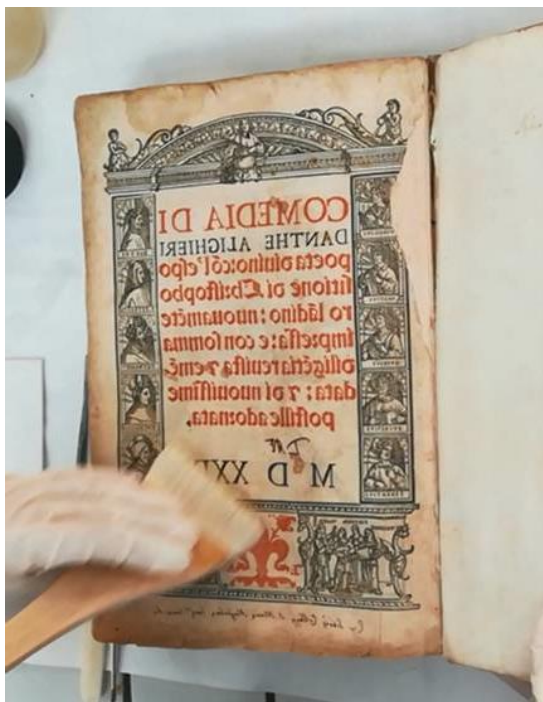 COMEDIA DI
DANTHE ALIGHIERI
poeta diuino: cõ l'espo
sitione di Christopho
ro lãdino: nuouamẽte
impressa: e con somma
diligẽtia reuista ⁊ emẽ
data: ⁊ di nuouissime
postille adornata.
M D